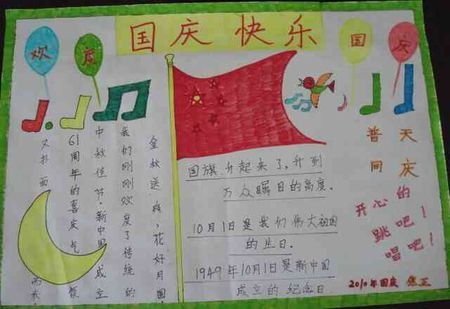 国庆 快乐
欢 庆
国 庆
金秋送爽,花好月圆
我们刚刚欢度了传统的
中秋佳节,新中国成立
61周年的喜庆气氛
又扑面而来
国旗升起来了,升到
万众瞩目的高度.
10月1日是我们伟大祖国
的生日.
1949年10月1日是新中国
成立的纪念日
普天
同庆
开心的
跳吧!
唱吧!
2010年国庆